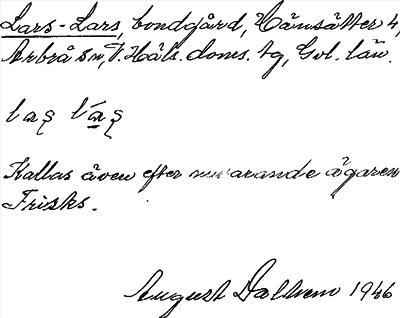 Lars-Lars, bondgård, Hänsätter 4,
Arbrå sn, V. Häls. doms. tg, Gvl. län.
Kallas även efter nuvarande ägaren
Frisks.
August Dalhem 1946